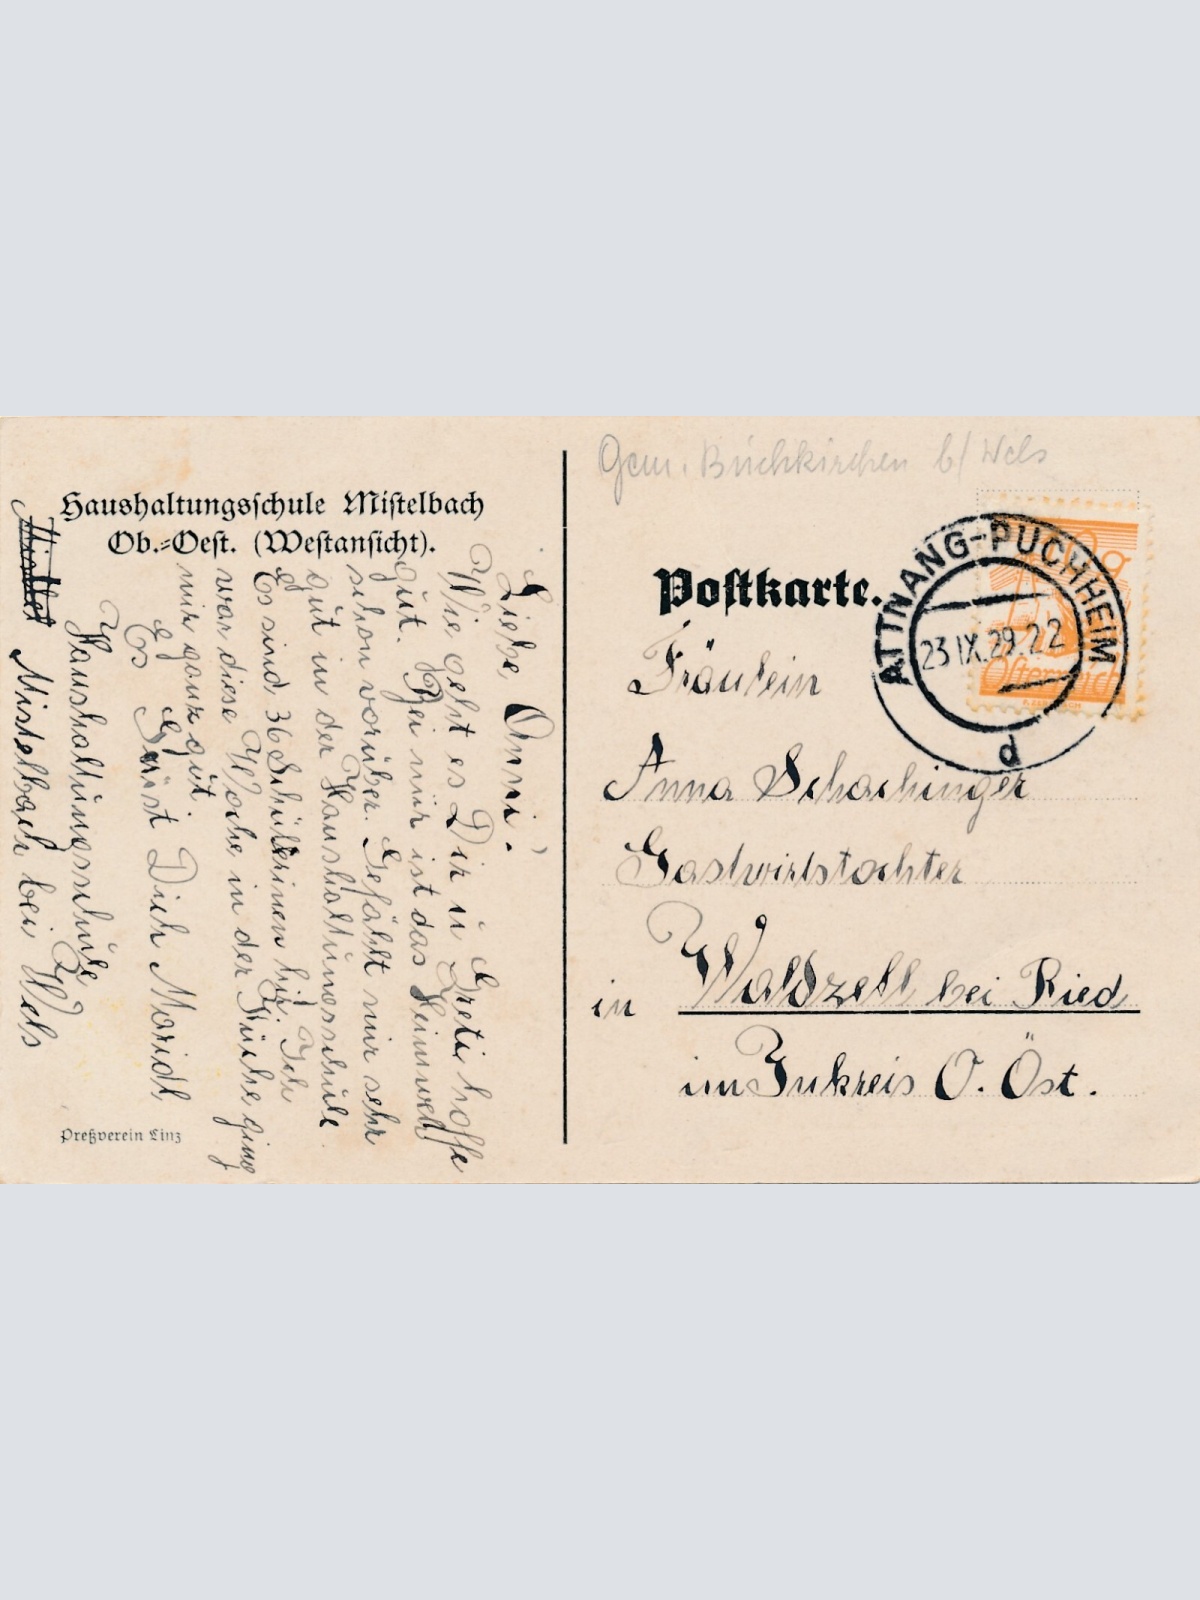 Haushaltungsschule Mistelbach
Ob.=Oest. (Westansicht).
Liebe Anni!
Wie geht es Dir u Greti, hoffe
gut. Bei mir ist das Heimweh
schon vorüber. Gefählt mir sehr
gut in der Haushaltungsschule.
Es sind 36 Schülerinen hir. Ich
war diese Woche in der Küche ging
mir ganz gut.
Es Grüst Dich Maridl
Haushaltungsschule
Mistelbach bei Wels
Preßverein Linz
Gem. Buchkirchen b/ Wels
Postkarte.
ATTNANG-PUCHHEIM
23.IX.29.22
d
Österreich
Fräulein
Anna Schachinger
Gastwirtstochter
in Waldzell bei Ried
im Innkreis O. Öst.